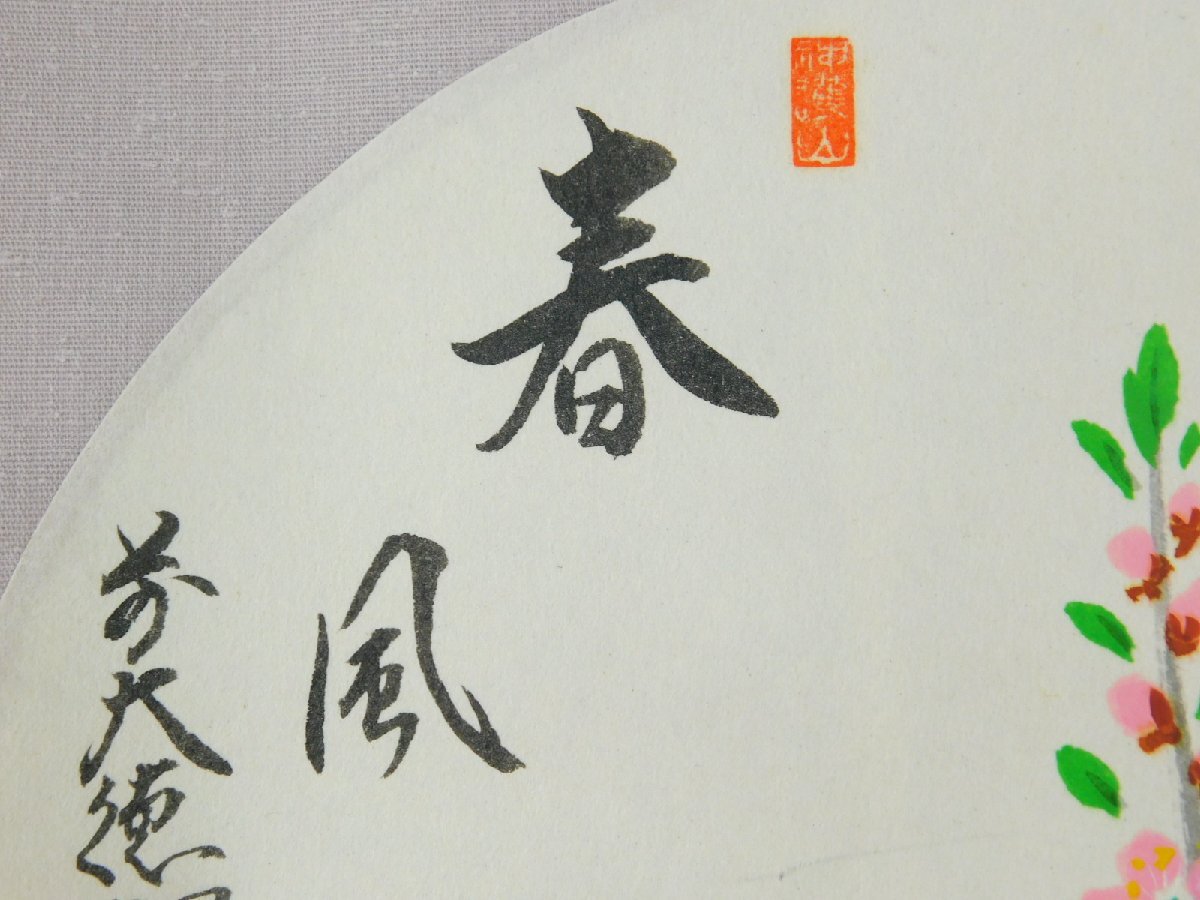 春風
前大徳